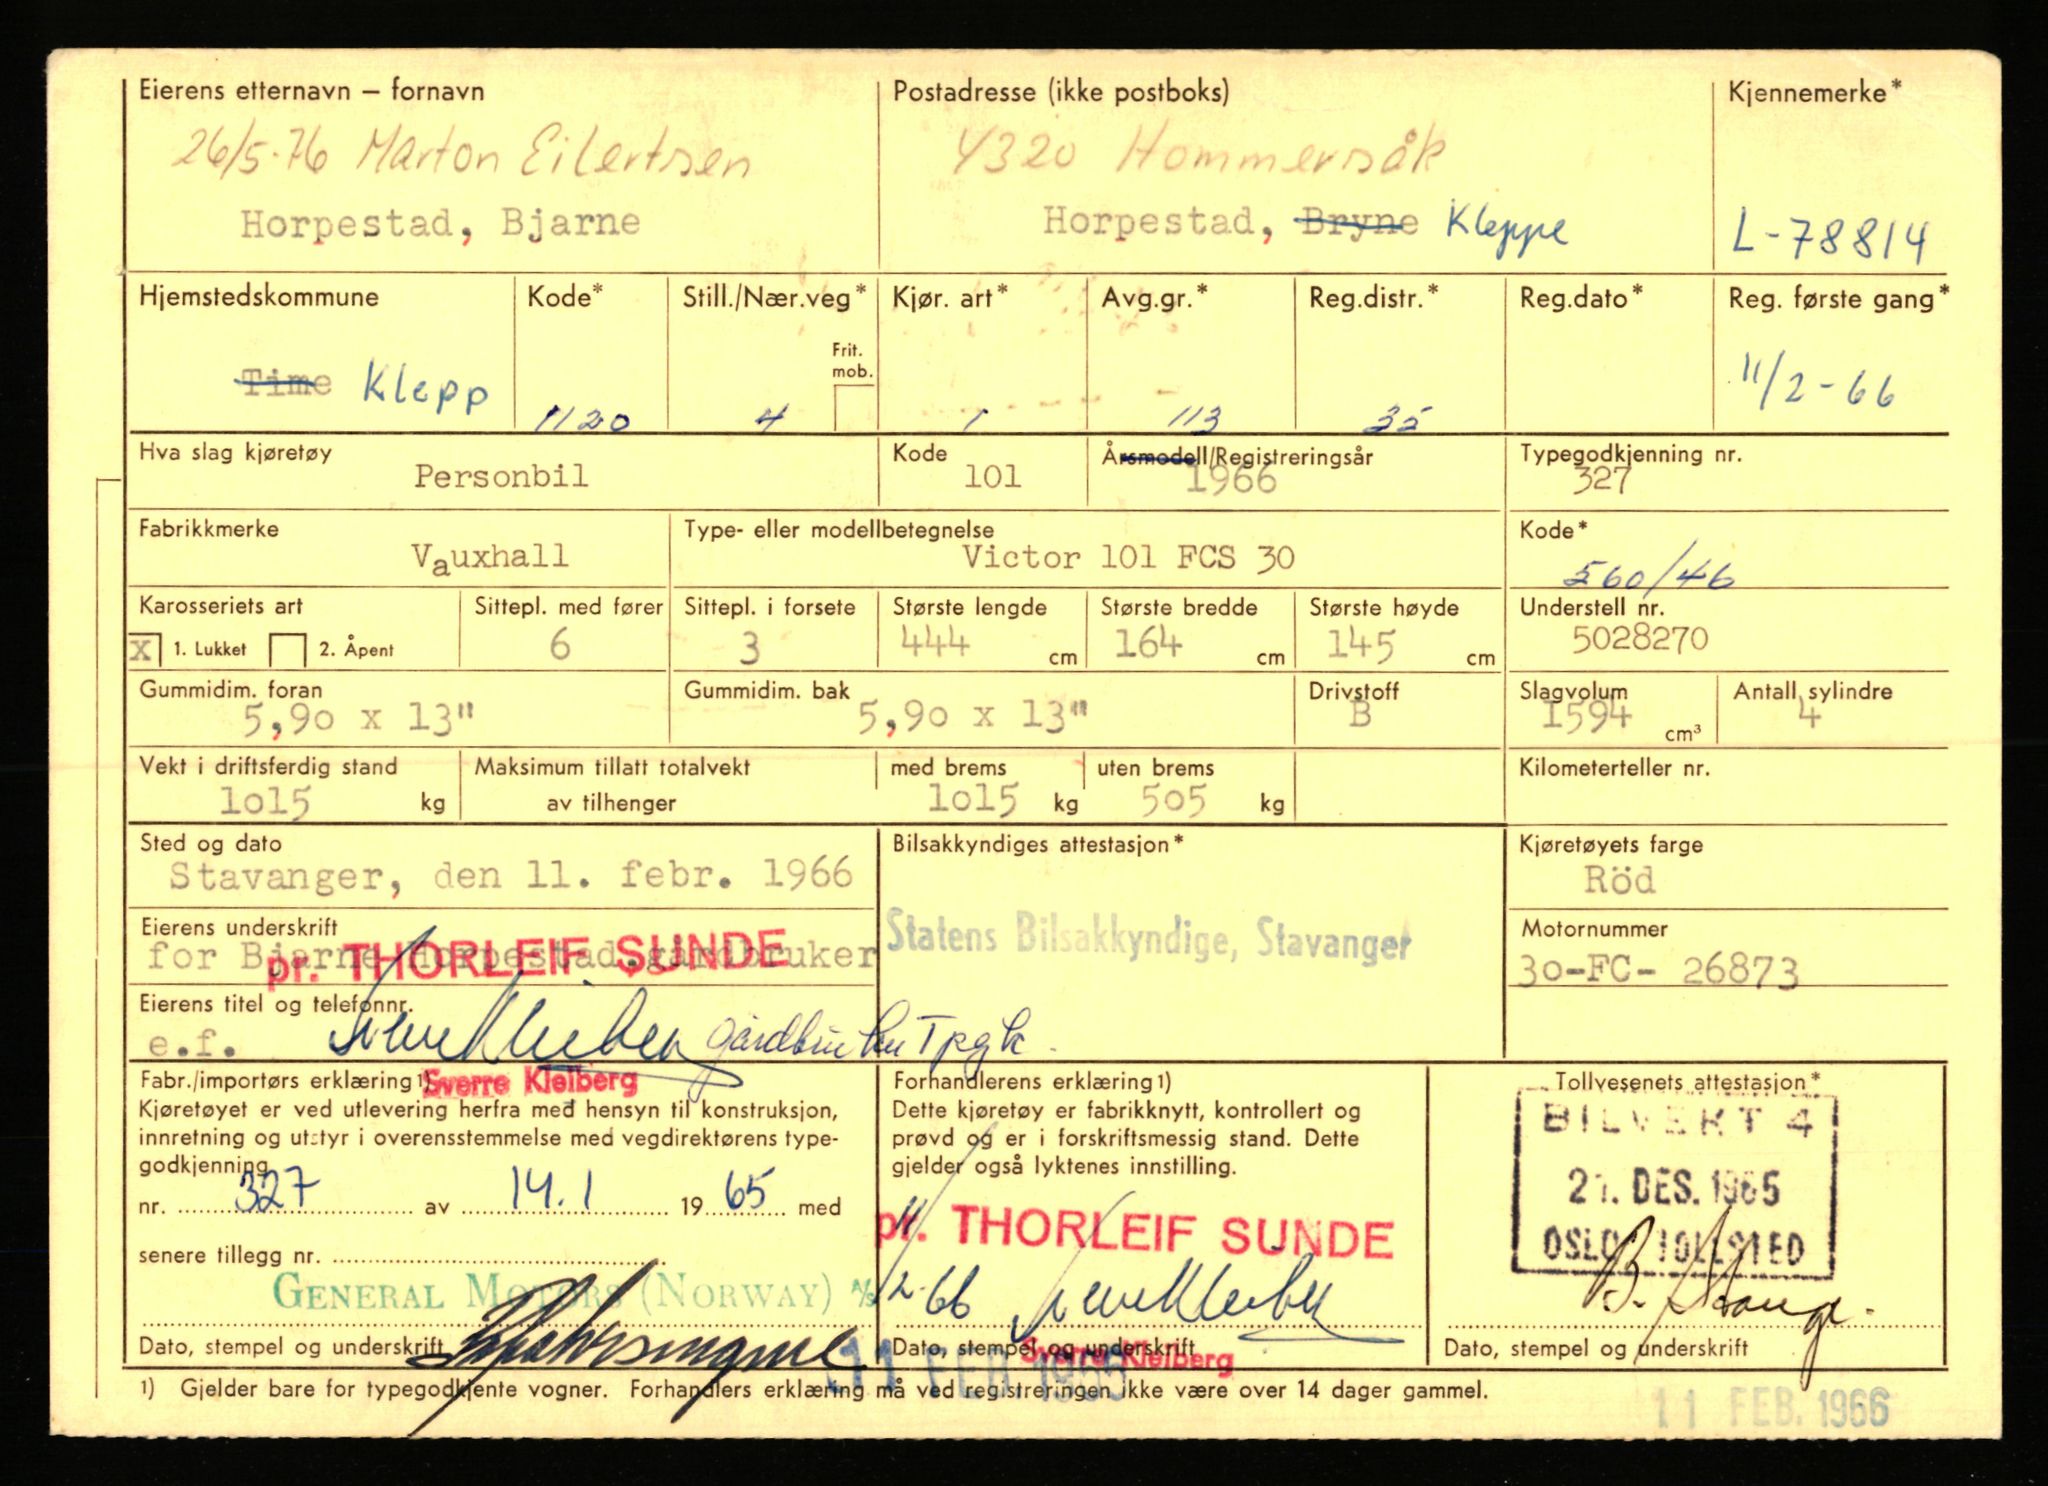 Eierens etternavn – fornavn
Postadresse (ikke postboks)
Kjennemerke*
26/5-76 Marton Eilertsen
4320 Hommersåk
Horpestad, Bjarne
Horpestad, Bryne Kleppe
L-78814
Hjemstedskommune
Kode*
Still./Nær.veg*
Kjør. art*
Avg.gr.*
Reg.distr.*
Reg.dato*
Reg. første gang*
Frit. mob.
Time Klepp
1120
4
1
113
35
11/2-66
Hva slag kjøretøy
Personbil
Kode
101
Årsmodell/Registreringsår
1966
Typegodkjenning nr.
327
Fabrikkmerke
Vauxhall
Type- eller modellbetegnelse
Victor 101 FCS 30
Kode*
560/46
Karosseriets art
X 1. Lukket 2. Åpent
Sittepl. med fører
6
Sittepl. i forsete
3
Største lengde
444 cm
Største bredde
164 cm
Største høyde
145 cm
Understell nr.
5028270
Gummidim. foran
5,90 x 13"
Gummidim. bak
5,90 x 13"
Drivstoff
B
Slagvolum
1594 cm³
Antall sylindre
4
Vekt i driftsferdig stand
1015 kg
Maksimum tillatt totalvekt
av tilhenger
med brems
1015 kg
uten brems
505 kg
Kilometerteller nr.
Sted og dato
Stavanger, den 11. febr. 1966
Bilsakkyndiges attestasjon*
Statens Bilsakkyndige, Stavanger
Kjøretøyets farge
Röd
Eierens underskrift
for Bjarne Horpestad, gårdbruker
pr. THORLEIF SUNDE
Motornummer
30-FC- 26873
Eierens titel og telefonnr.
e.f.
Sverre Kleiberg
Sverre Kleiberg
Fabr./importørs erklæring 1)
Kjøretøyet er ved utlevering herfra med hensyn til konstruksjon,
innretning og utstyr i overensstemmelse med vegdirektørens type-
godkjenning
nr. 327 av 14.1 1965 med
senere tillegg nr.
GENERAL MOTORS (NORWAY) A/S
Dato, stempel og underskrift
Forhandlerens erklæring 1)
Dette kjøretøy er fabrikknytt, kontrollert og
prøvd og er i forskriftsmessig stand. Dette
gjelder også lyktenes innstilling.
pr. THORLEIF SUNDE
11/2-66 Sverre Kleiberg
Dato, stempel og underskrift
Sverre Kleiberg
Tollvesenets attestasjon*
BILVERT 4
21. DES. 1965
OSLO TOLLSTED
Dato, stempel og underskrift
11 FEB 1966
1) Gjelder bare for typegodkjente vogner. Forhandlers erklæring må ved registreringen ikke være over 14 dager gammel.
11 FEB. 1966